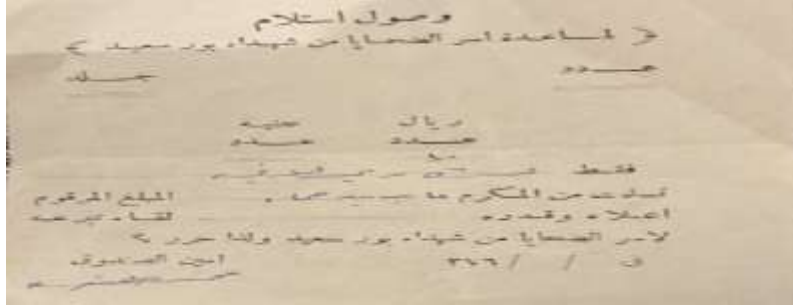 وصول استلام
( لمساعدة اسر الضحايا من شهداء بور سعيد )
عدد جلد
ريال جنيه
عدد عدد
فقط
تسلمت من المكرم المبلغ المرقوم
اعلاه وقدره لقاء تبرعه
لاسر الضحايا من شهداء بور سعيد ولذا حرر ،
في / / ٣٧٦ امين الصندوق